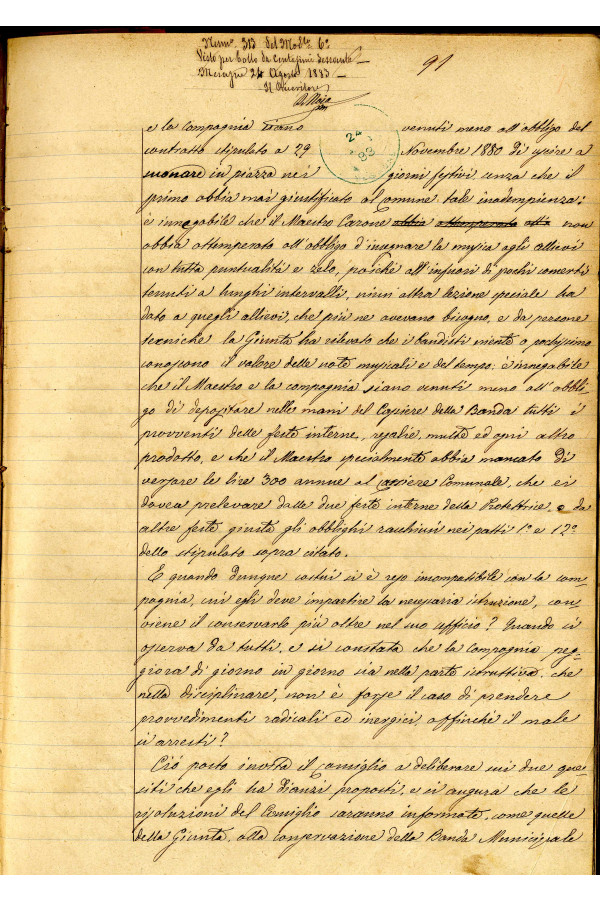 Num.° 313 del Mod.lo 6°
Visto per bollo da Centesimi sessanta
24 Agosto 1883
Il Ricevitore
91
24
83
e la Compagnia siano venuti meno all'obbligo del
contratto stipulato a 29 Novembre 1880 di uscire a
suonare in piazza nei giorni festivi senza che il
primo abbia mai giustificato al Comune tale inadempienza;
è innegabile che il Maestro Carone abbia ottemperato non
abbia ottemperato all'obbligo d'insegnare la musica agli allievi
con tutta puntualità e zelo, poiché all'infuori di pochi concerti
tenuti a lunghi intervalli, niun'altra lezione speciale ha
dato a quegli allievi, che più ne avevano bisogno, e da persone
tecniche la Giunta ha rilevato che i bandisti niente o pochissimo
conoscono il valore delle note musicali e del tempo: è innegabile
che il Maestro e la compagnia siano venuti meno all'obbli-
go di depositare nelle mani del Cassiere della Banda tutti i
provventi delle feste interne, regalie, multe ed ogni altro
prodotto, e che il Maestro specialmente abbia mancato di
versare le lire 300 annue al Cassiere Comunale, che ei
dovea prelevare dalle due feste interne della Protettrice, e da
altre feste giusta gli obblighi racchiusi nei patti 1° e 12°
dello stipulato sopra citato.
E quando dunque costui si è reso incompatibile con la com-
pagnia, cui egli deve impartire la necessaria istruzione, con-
viene il conservarlo più oltre nel suo ufficio? Quando si
osserva da tutti, e si constata che la Compagnia peg-
giora di giorno in giorno sia nella parte istruttiva, che
nella disciplinare, non è forse il caso di prendere
provvedimenti radicali ed inergici affinché il male
si arresti?
Ciò posto invita il Consiglio a deliberare sui due que-
siti che egli ha dianzi proposti, e si augura che le
risoluzioni del Consiglio saranno informate, come quelle
della Giunta, alla conservazione della Banda Municipale